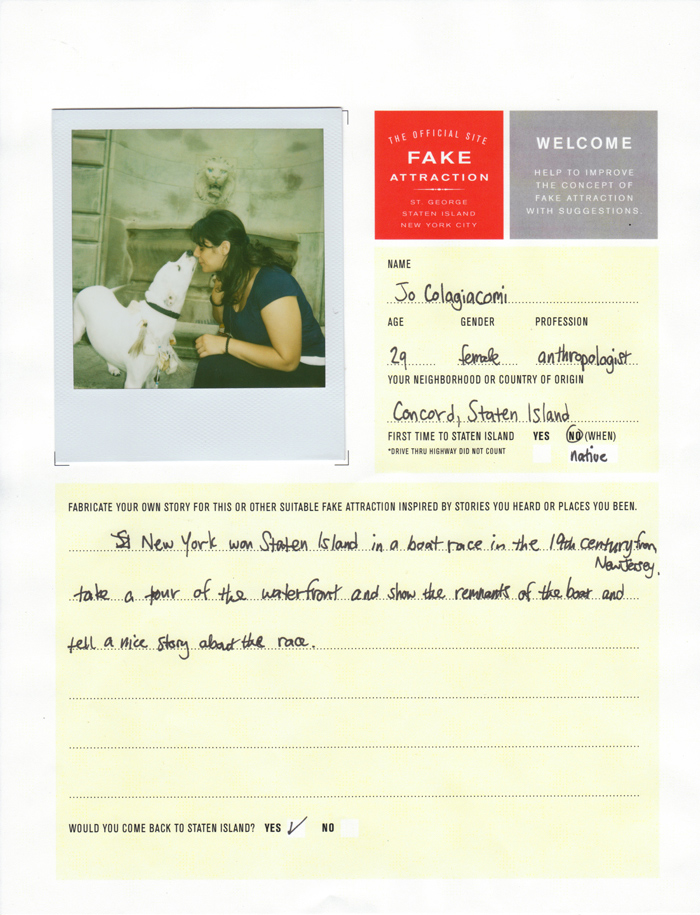 THE OFFICIAL SITE
FAKE
ATTRACTION
ST. GEORGE
STATEN ISLAND
NEW YORK CITY
WELCOME
HELP TO IMPROVE
THE CONCEPT OF
FAKE ATTRACTION
WITH SUGGESTIONS.
NAME
Jo Colagiacomi
AGE GENDER PROFESSION
29 female anthropologist
YOUR NEIGHBORHOOD OR COUNTRY OF ORIGIN
Concord, Staten Island
FIRST TIME TO STATEN ISLAND YES NO (WHEN)
*DRIVE THRU HIGHWAY DID NOT COUNT native
FABRICATE YOUR OWN STORY FOR THIS OR OTHER SUITABLE FAKE ATTRACTION INSPIRED BY STORIES YOU HEARD OR PLACES YOU BEEN.
New York won Staten Island in a boat race in the 19th century from
New Jersey.
take a tour of the waterfront and show the remnants of the boat and
tell a nice story about the race.
WOULD YOU COME BACK TO STATEN ISLAND? YES NO